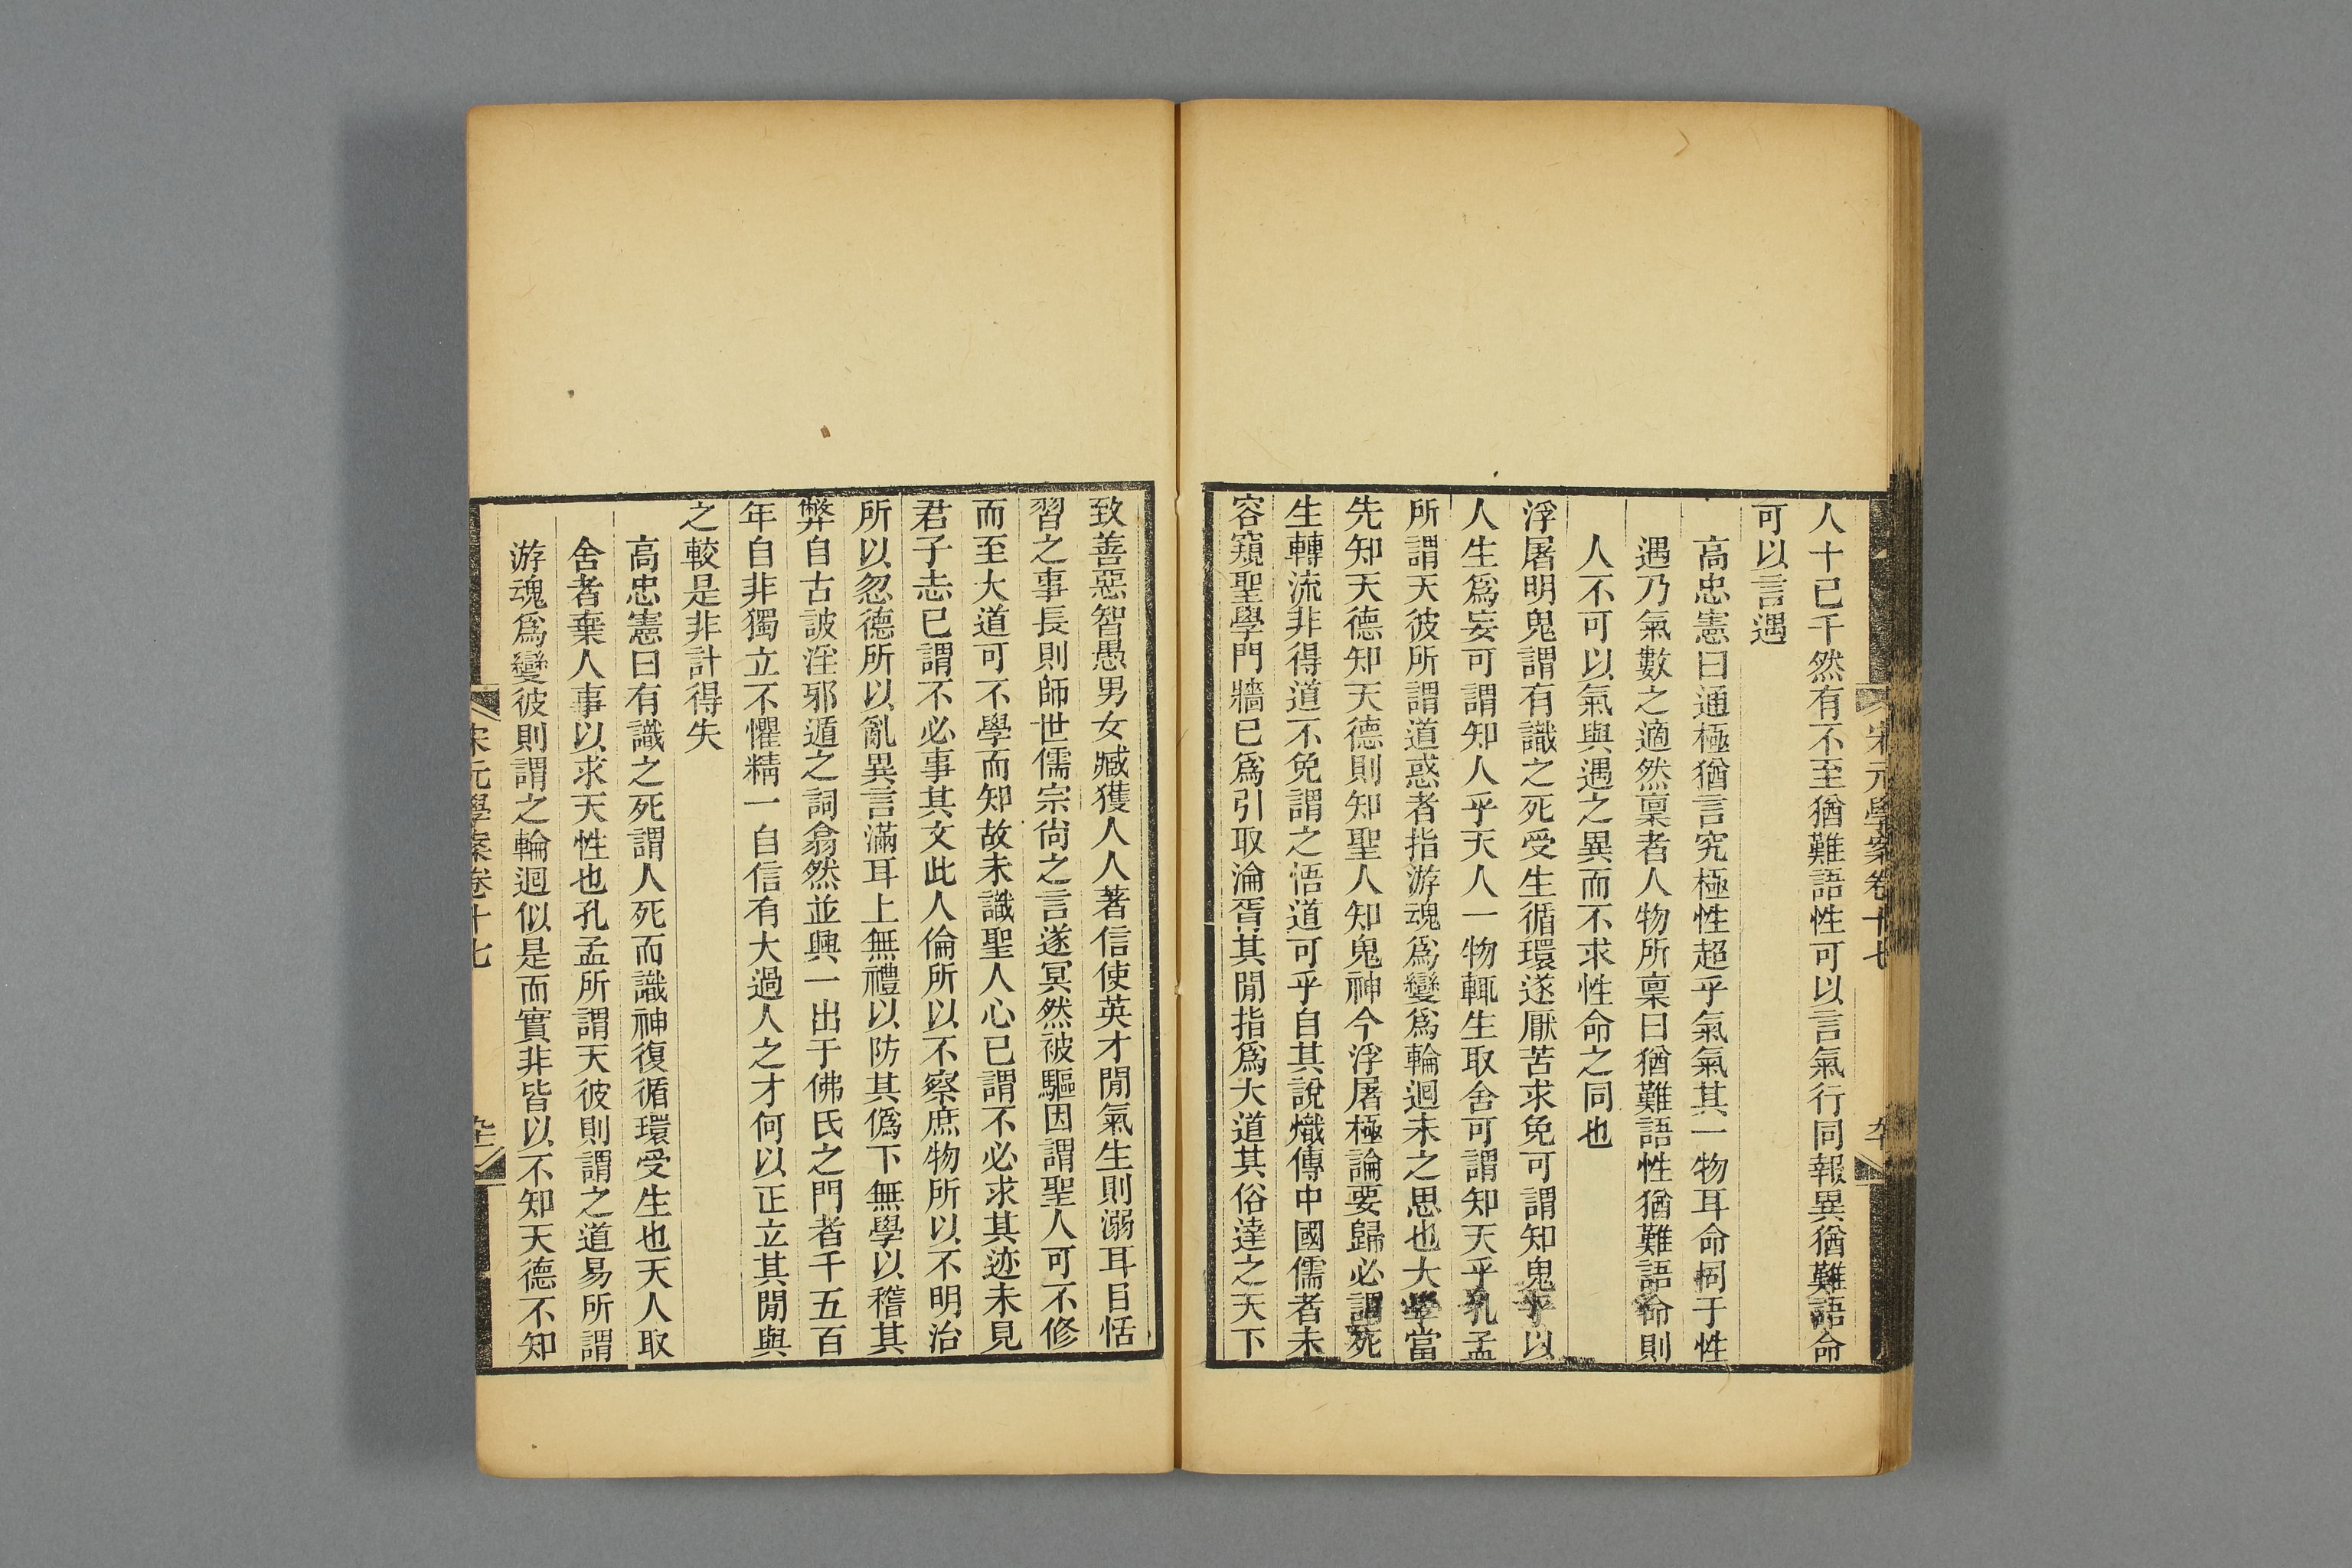 宋元學案卷十七
人十己千然有不至猶難語性可以言氣行同報異猶難語命
可以言遇
高忠憲曰通極猶言究極性超乎氣氣其一物耳命同于性
遇乃氣數之適然稟者人物所稟曰猶難語性猶難語命則
人不可以氣與遇之異而不求性命之同也
浮屠明鬼謂有識之死受生循環遂厭苦求免可謂知鬼乎以
人生爲妄可謂知人乎天人一物輒生取舍可謂知天乎孔孟
所謂天彼所謂道惑者指游魂爲變爲輪迴未之思也大學當
先知天德知天德則知聖人知鬼神今浮屠極論要歸必謂死
生轉流非得道不免謂之悟道可乎自其說熾傳中國儒者未
容窺聖學門牆已爲引取淪胥其閒指爲大道其俗達之天下
致善惡智愚男女臧獲人人著信使英才閒氣生則溺耳目恬
習之事長則師世儒宗尙之言遂冥然被驅因謂聖人可不修
而至大道可不學而知故未識聖人心已謂不必求其迹未見
君子志已謂不必事其文此人倫所以不察庶物所以不明治
所以忽德所以亂異言滿耳上無禮以防其僞下無學以稽其
弊自古詖淫邪遁之詞翕然並興一出于佛氏之門者千五百
年自非獨立不懼精一自信有大過人之才何以正立其閒與
之較是非計得失
高忠憲曰有識之死謂人死而識神復循環受生也天人取
舍者棄人事以求天性也孔孟所謂天彼則謂之道易所謂
游魂爲變彼則謂之輪迴似是而實非皆以不知天德不知
宋元學案卷十七